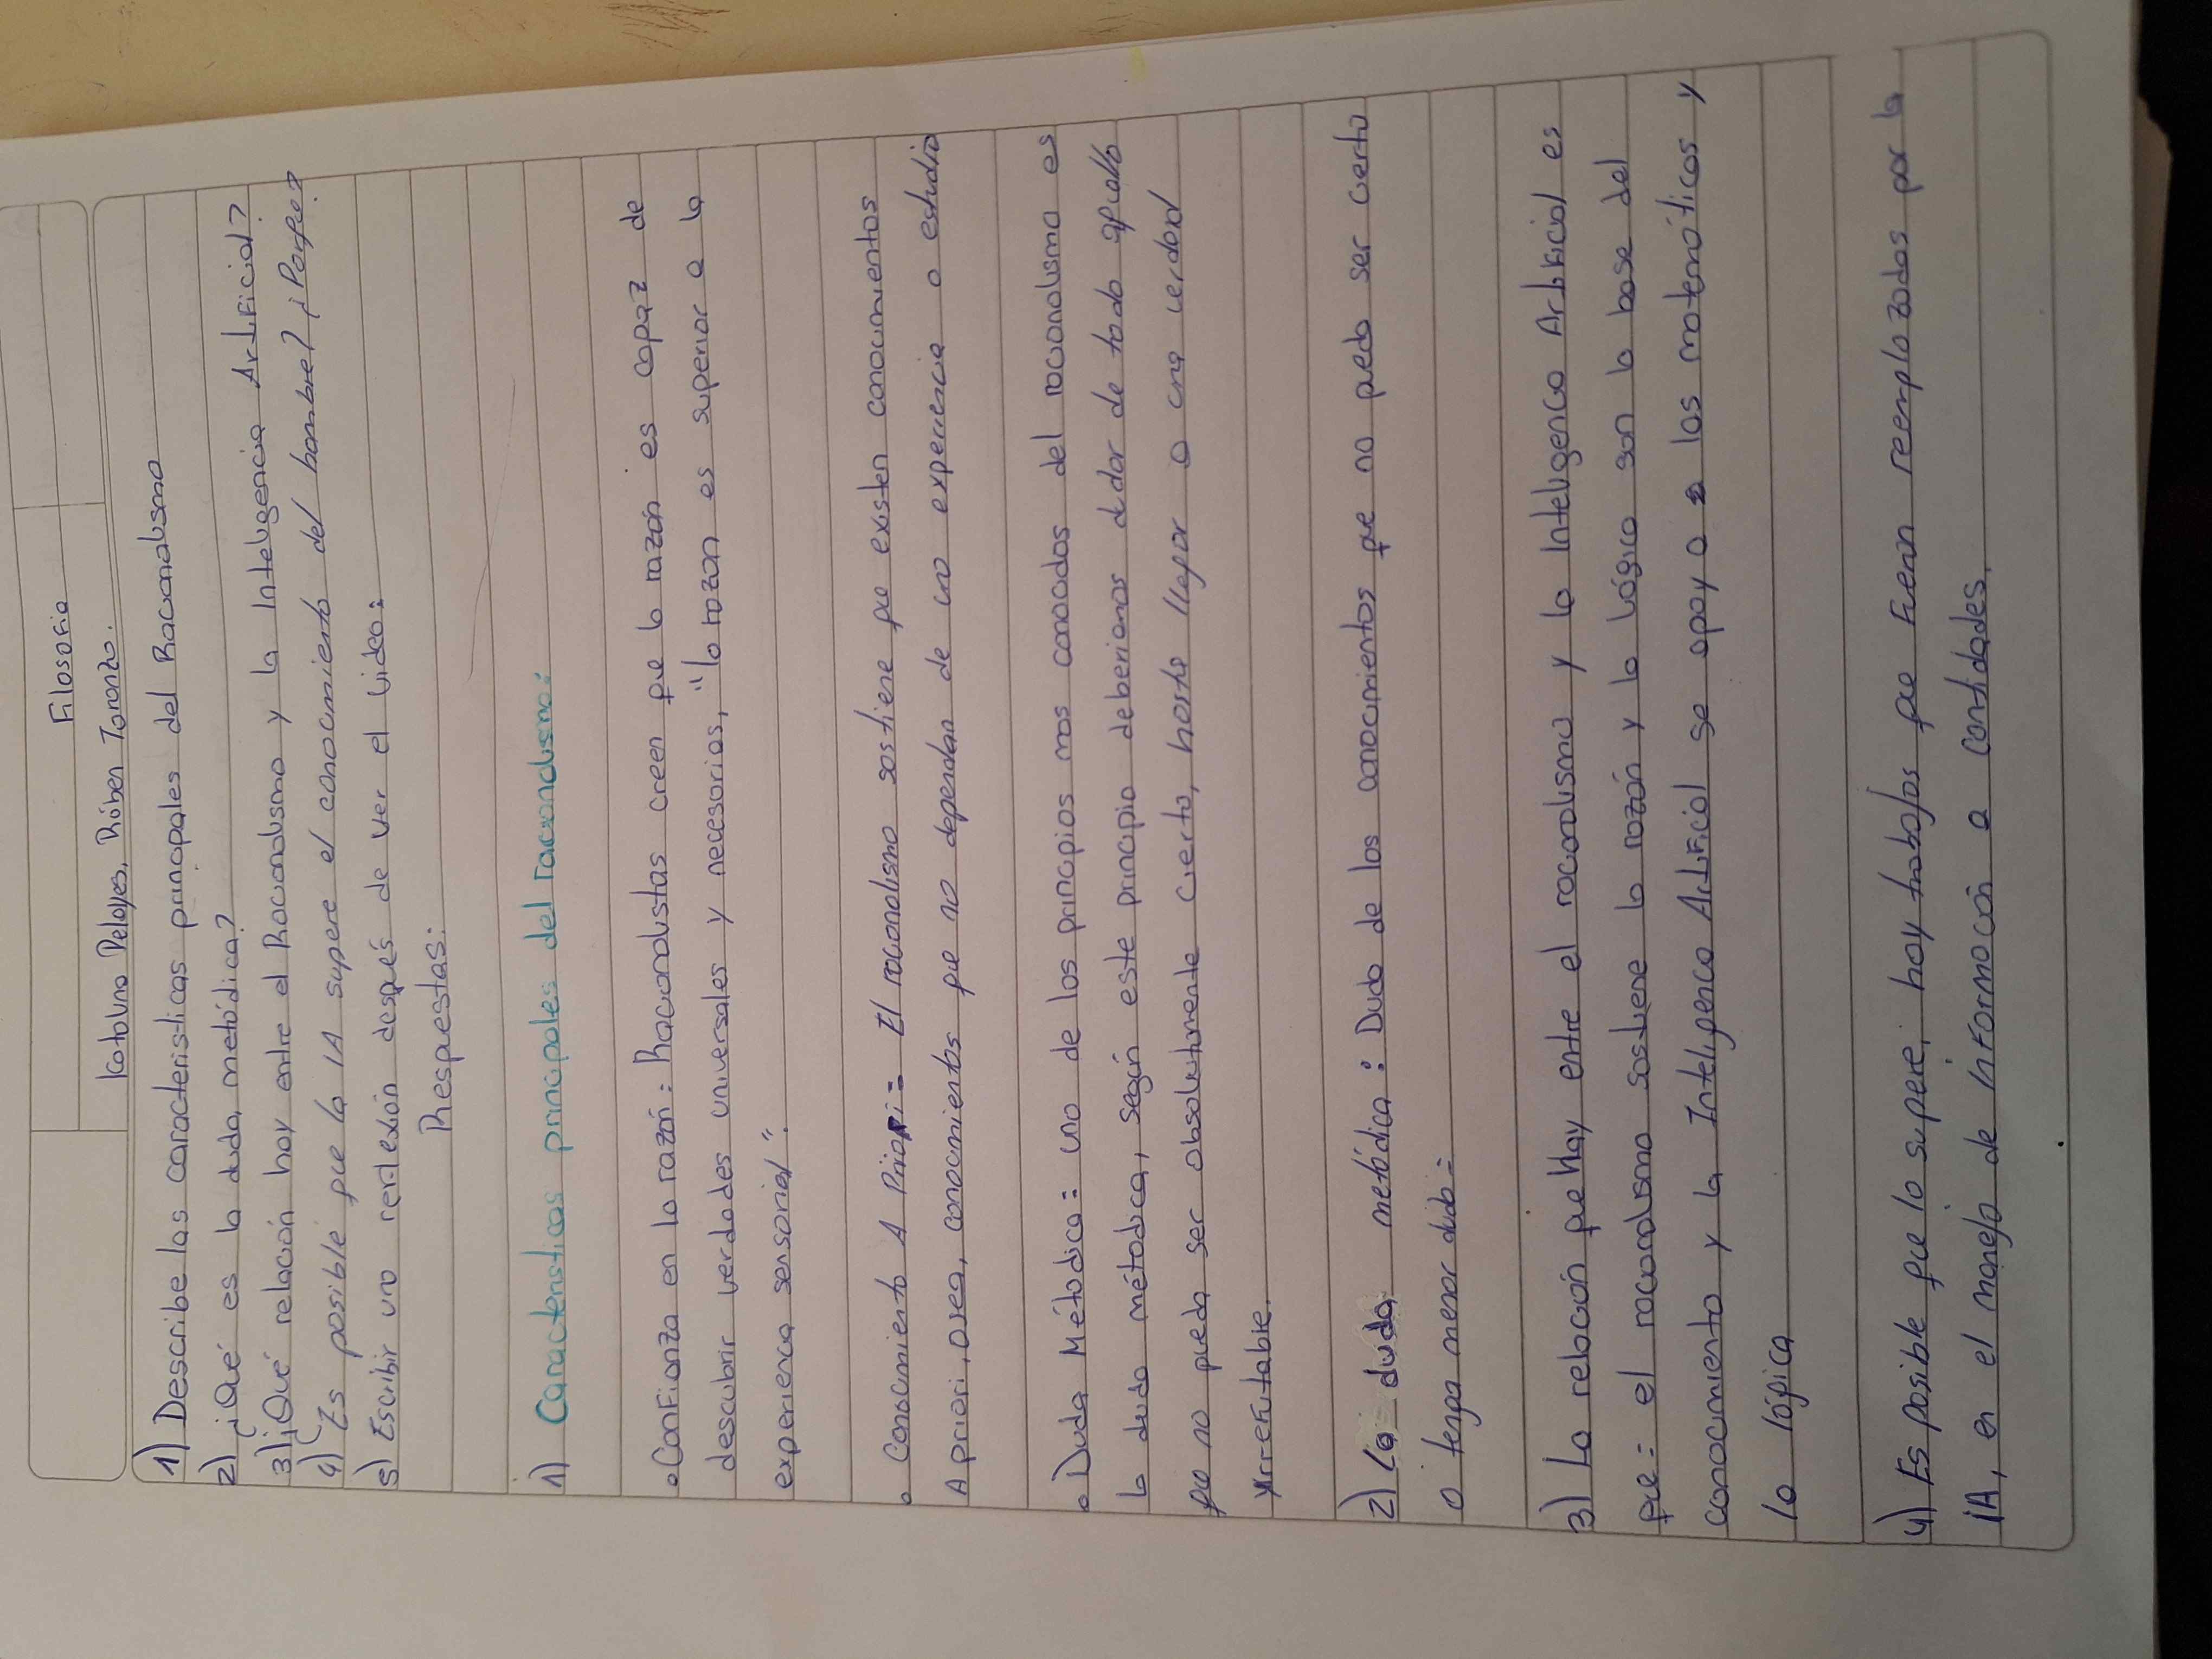 Filosofia
Katalina Pelayes, Rúben Toranzo.
1) Describe las caracteristicas principales del Racionalismo
2) ¿Qué es la duda metódica?
3) ¿Qué relación hay entre el Racionalismo y la Inteligencia Artificial?
4) Es posible que la IA supere el conocimiento del hombre? ¿Porque?
5) Escribir una reflexión despés de ver el video:
Respuestas:
1) Caracteristicas principales del racionalismo:
• Confianza en la razón: Racionalistas creen que la razón es capaz de
descubrir verdades universales y necesarias, "la razon es superior a la
experiencia sensorial".
• Conocimiento A Priori= El racionalismo sostiene que existen conocimientos
A priori, osea, conocimientos que no dependan de una experiencia o estudio
• Duda Métodica= uno de los principios mas conocidos del racionalismo es
la duda métodica, según este principio deberiamos dudar de todo aquello
que no pueda ser absolutamente cierto, hasta llegar a una verdad
irrefutable.
2) La duda metódica: Duda de los conocimientos que no pueda ser cierto
o tenga menor duda=
3) La relación que Hay entre el racionalismo y la Inteligencia Artificial es
que= el racionalismo sostiene la razón y la lógica son la base del
conocimiento y la Inteligencia Artificial se apoya a las matemáticas y
la lógica
4) Es posible que lo supere, hay trabajos que fueron reemplazados por la
IA, en el manejo de información a cantidades,